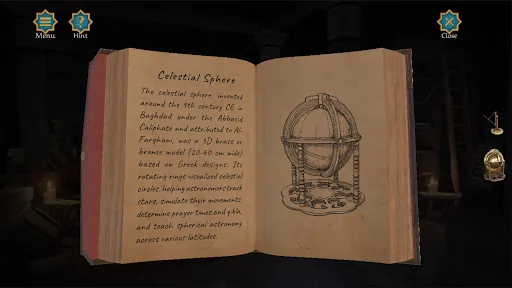 Menu
Hint
Close
Celestial Sphere
The celestial sphere, invented
around the 9th century CE in
Baghdad under the Abbasid
Caliphate and attributed to Al-
Farghani, was a 3D brass or
bronze model (20-60 cm wide)
based on Greek designs. Its
rotating rings visualized celestial
circles, helping astronomers track
stars, simulate their movements,
determine prayer times and qibla,
and teach spherical astronomy
across various latitudes.